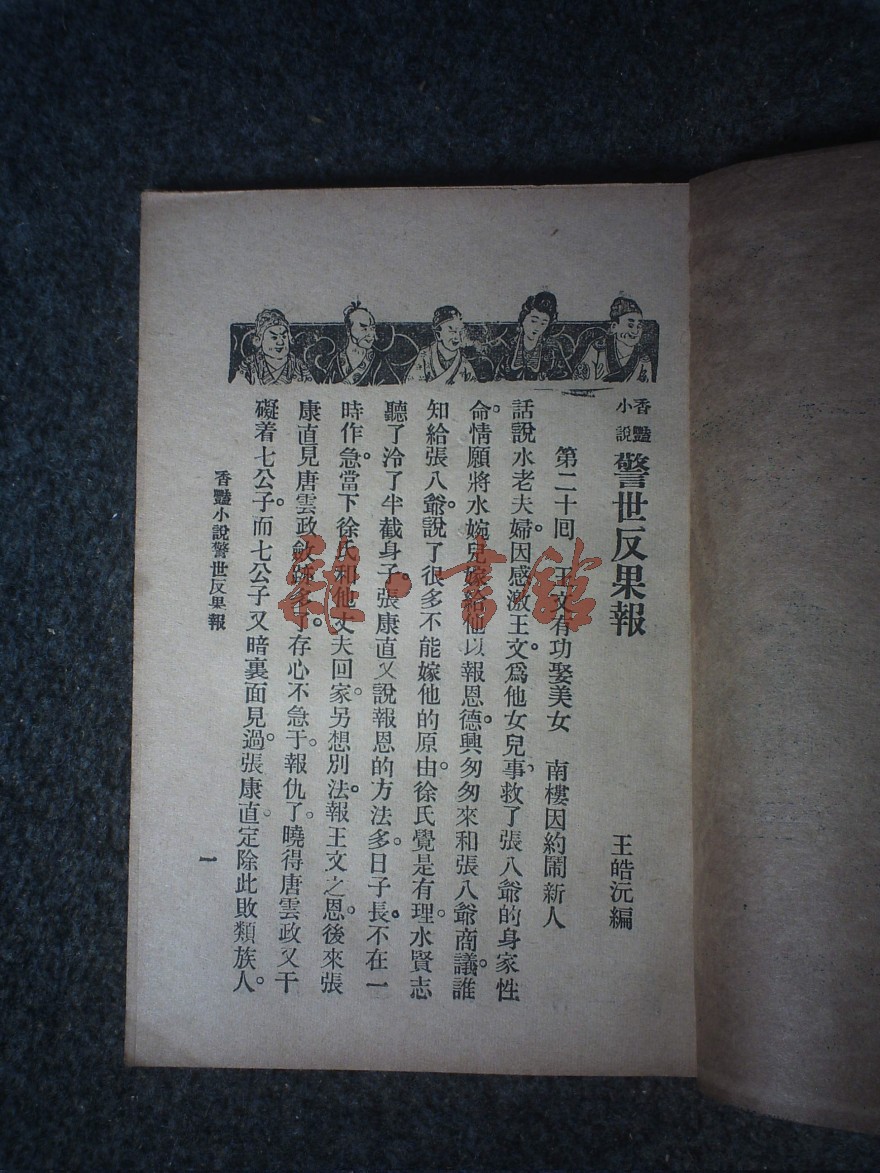 香豔小說 警世反果報
王皓沅編
第二十回　王文有功娶美女　南樓因約鬧新人
話說水老夫婦。因感激王文。爲他女兒事、救了張八爺的身家性
命。情願將水婉兒嫁給他以報恩德。興匆匆來和張八爺商議。誰
知給張八爺說了很多不能嫁他的原由。徐氏覺是有理。水賢志
聽了冷了半截身子。張康直又說報恩的方法多。日子長。不在一
時作急。當下徐氏和他丈夫回家。另想別法。報王文之恩。後來張
康直見唐雲政斂跡多了。存心不急于報仇了。曉得唐雲政又干
礙着七公子。而七公子又暗裏面見過。張康直定除此敗類族人。
香豔小說警世反果報
一
雜·書館